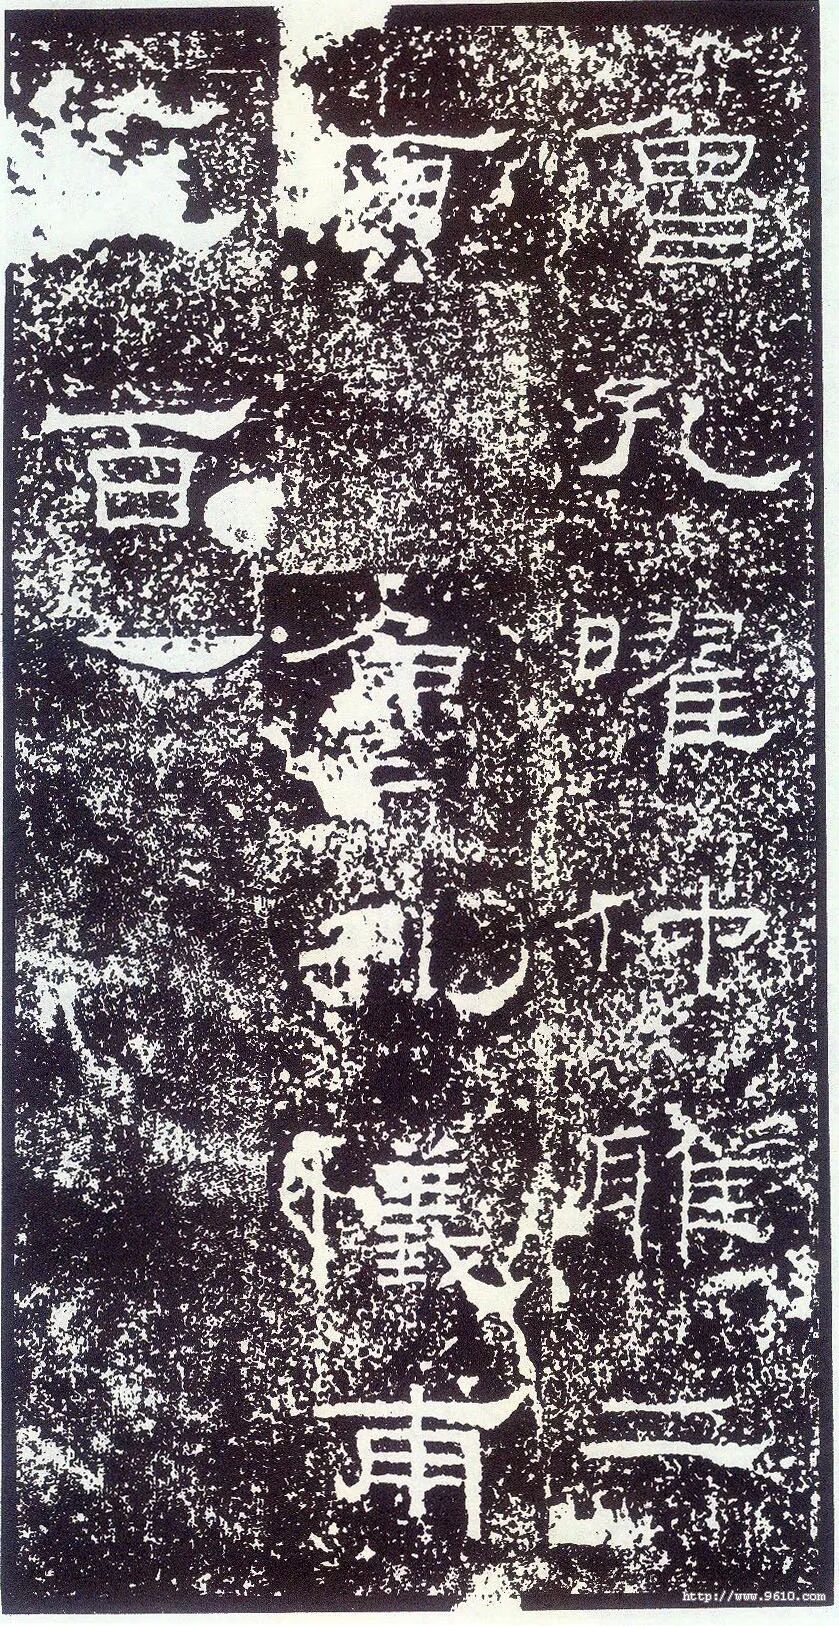 魯孔曜仲雅二
百魯孔儀甫
二百
http://www.9610.com